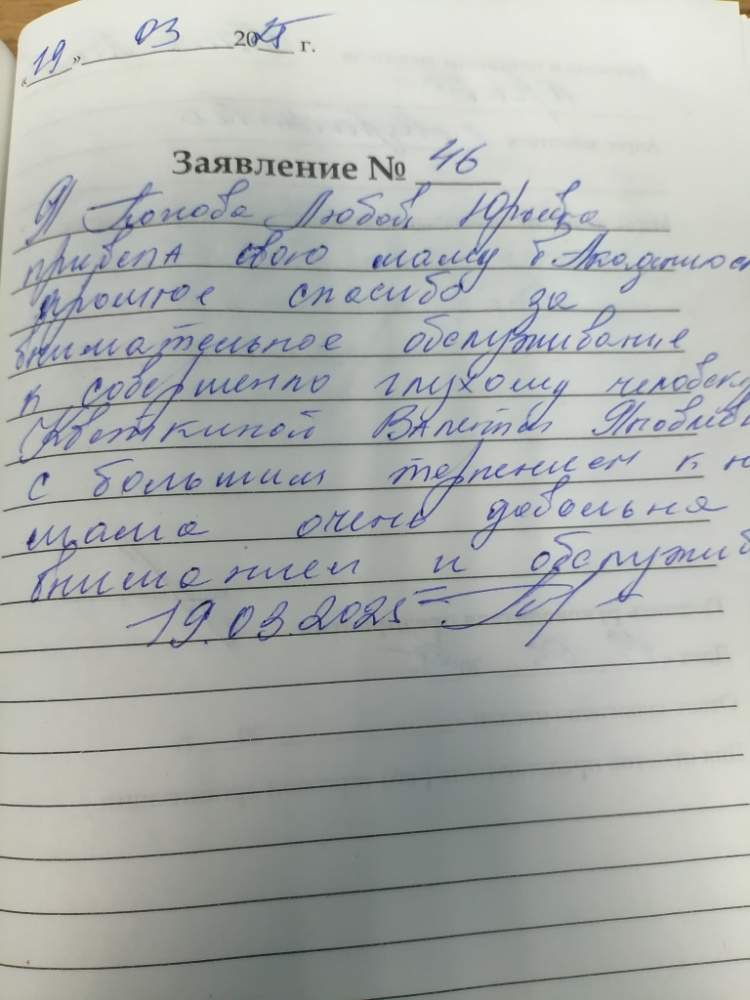 «19» 03 2025 г.
Заявление № 46
Я Попова Любовь Юрьевна
привела свою маму в
громное спасибо за
внимательное обслуживание
к совершенно глухому человеку
с большим терпением к н
мама очень довольна
вниманием и обслужив
19.03.2025